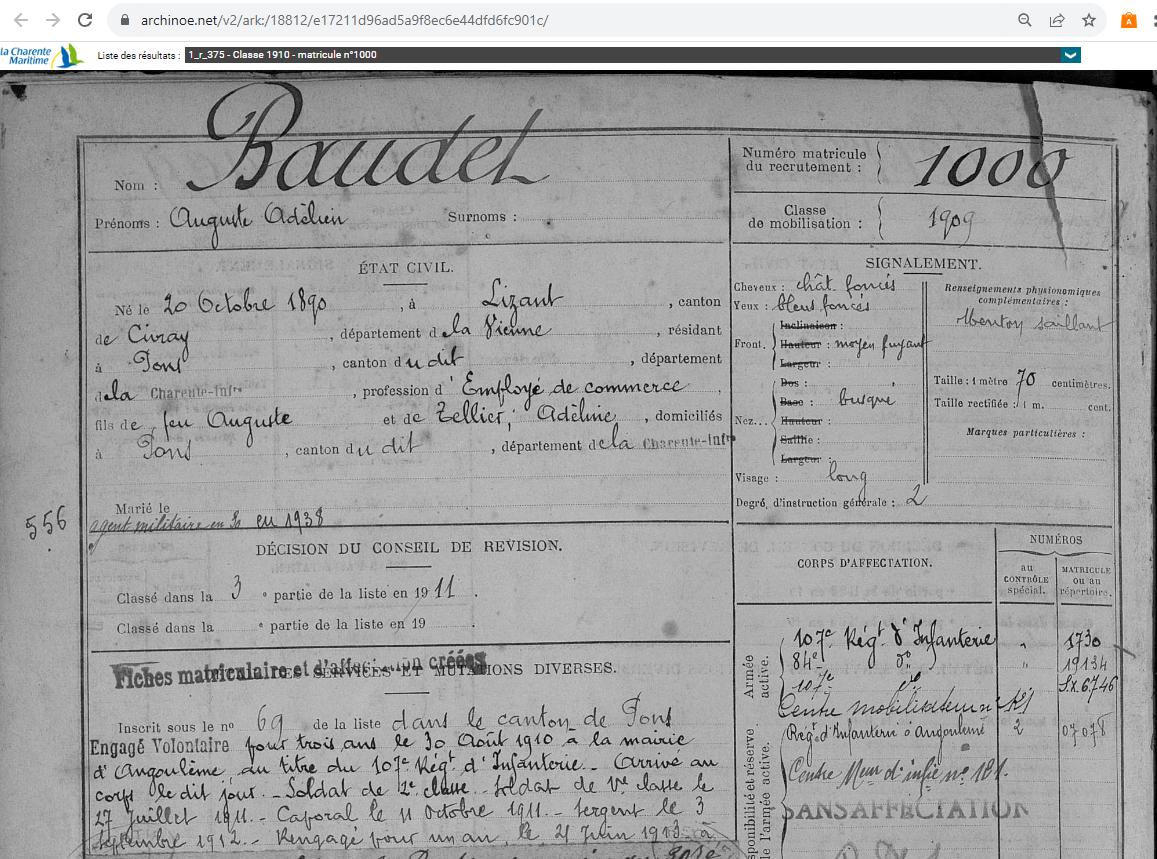 archinoe.net/v2/ark:/18812/e17211d96ad5a9f8ec6e44dfd6fc901c/
La Charente
Maritime
Liste des résultats : 1_r_375 - Classe 1910 - matricule n°1000
Nom : Baudet
Prénoms : Auguste Adélien Surnoms :
Numéro matricule
du recrutement : 1000
Classe
de mobilisation : 1909
ÉTAT CIVIL.
Né le 20 Octobre 1890, à Lizant, canton
de Civray, département de la Vienne, résidant
à Pons, canton du dit, département
de la Charente-Infre, profession d'Employé de commerce,
fils de feu Auguste et de Tellier, Adéline, domiciliés
à Pons, canton du dit, département de la Charente-Infre
Marié le
agent militaire en en 1938
556
SIGNALEMENT.
Cheveux : chât. foncés
Yeux : bleus foncés
Inclinaison :
Front. Hauteur : moyen fuyant
Largeur :
Dos :
Base : busqué
Nez... Hauteur :
Saillie :
Largeur :
Visage : long
Degré d'instruction générale : 2
Renseignements physionomiques
complémentaires :
Menton saillant
Taille : 1 mètre 70 centimètres.
Taille rectifiée : 1 m. cent.
Marques particulières :
DÉCISION DU CONSEIL DE REVISION.
Classé dans la 3e partie de la liste en 1911.
Classé dans la e partie de la liste en 19 .
Fiches matriculaire et d'affectation créées
SERVICES ET MUTATIONS DIVERSES.
Inscrit sous le no 69 de la liste dans le canton de Pons
Engagé Volontaire pour trois ans le 30 Août 1910 à la mairie
d'Angoulême, au titre du 107e Régt d'Infanterie. Arrivé au
corps le dit jour. Soldat de 2e classe. Soldat de 1re classe le
27 juillet 1911. Caporal le 11 Octobre 1911. Sergent le 3
septembre 1912. Rengagé pour un an, le 21 Juin 1913 à
CORPS D'AFFECTATION.
NUMÉROS
au
CONTRÔLE
spécial.
MATRICULE
ou au
répertoire.
Armée
active.
107e Régt d'Infanterie " 1730
84e do " 19134
107e do Sx.6746
Centre mobilisateur n°
Régt d'Infanterie à Angoulême 2 07078
Centre Mor d'infie no 181.
SANS AFFECTATION
Disponibilité et réserve
de l'armée active.